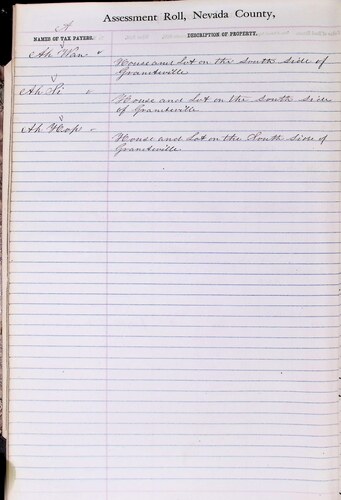 Assessment Roll, Nevada County,
A
NAMES OF TAX PAYERS.
DESCRIPTION OF PROPERTY.
Ah Wan
House and Lot on the South Side of
Graniteville
Ah Si
House and Lot on the South Side
of Graniteville
Ah Hop
House and Lot on the South Side of
Graniteville